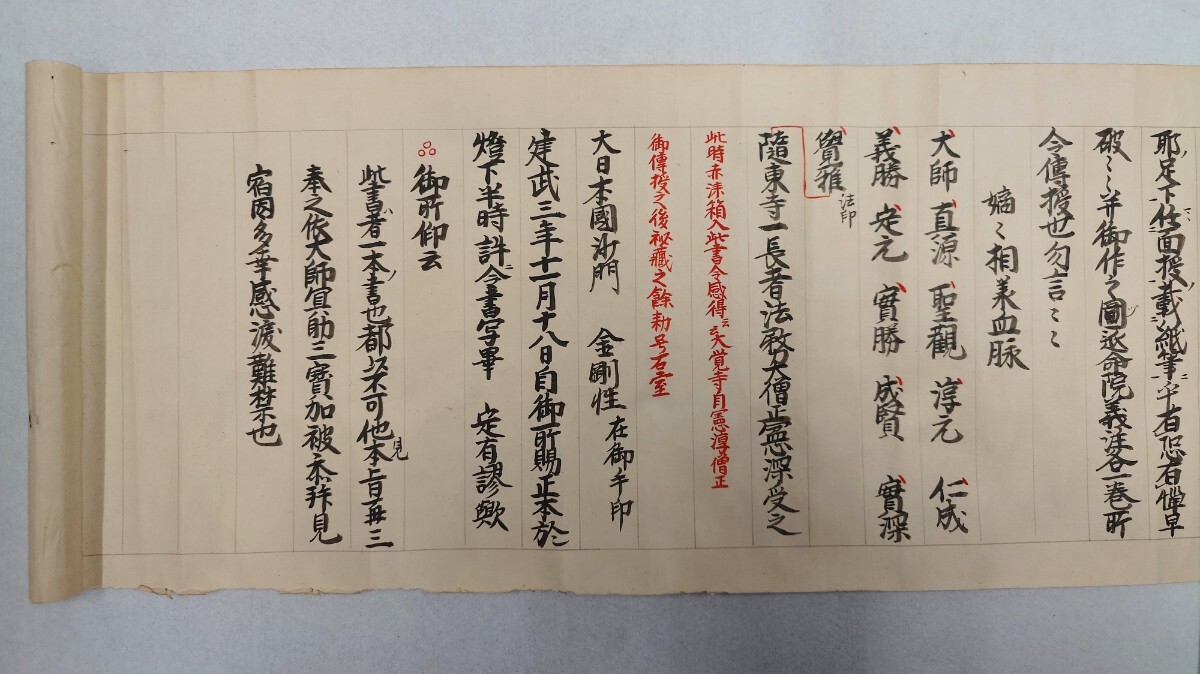 耶足下任面授載紙筆乎若恐有憚早
破〻幷御作之圖延命院義決各一巻所
令傳授也勿言〻〻
嫡〻相承血脉
大師 真源 聖觀 淳元 仁成
義勝 定元 實勝 成賢 實深
覺雅法印
隨東寺一長者法務大僧正憲深受之
此時赤漆箱入此書令感得云云大覚寺自憲淳僧正
御傳授之後秘蔵之餘勅号石室
大日本國沙門 金剛性在御手印
建武三年十一月十八日自御所賜正本於
燈下半時許令書写畢 定有謬歟
御所仰云
此書者一本書也都以不可他見本旨再三
奉之依大師冥助三寶加被忝拜見
宿因多幸感涙難禁也